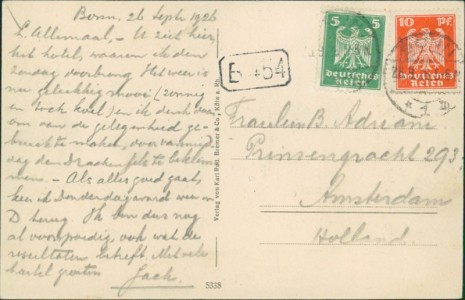 Bonn, 26 Sept 1926
L. Allemaal, – U ziet hier,
het hotel, waarin ik den
Zondag doorbreng. Het weer is
nu gelukkig mooi (zonnig
en toch koel) en ik denk
om van de gelegenheid ge-
bruik te maken, door vanmid-
dag den Drachenfels te beklim-
men. – Als alles goed gaat,
ben ik Donderdagavond weer in
D terug. Ik ben dus nog
al voorspoedig, ook wat de
resultaten betreft. Met vele
hartel groeten Jack.
5338
Verlag von Karl Rud. & Co., Köln a. Rh.
5 5
Deutsches
Reich
10 PF.
Deutsches
Reich
Fräulein B. Adriani
Prinsengracht 293
Amsterdam
Holland.